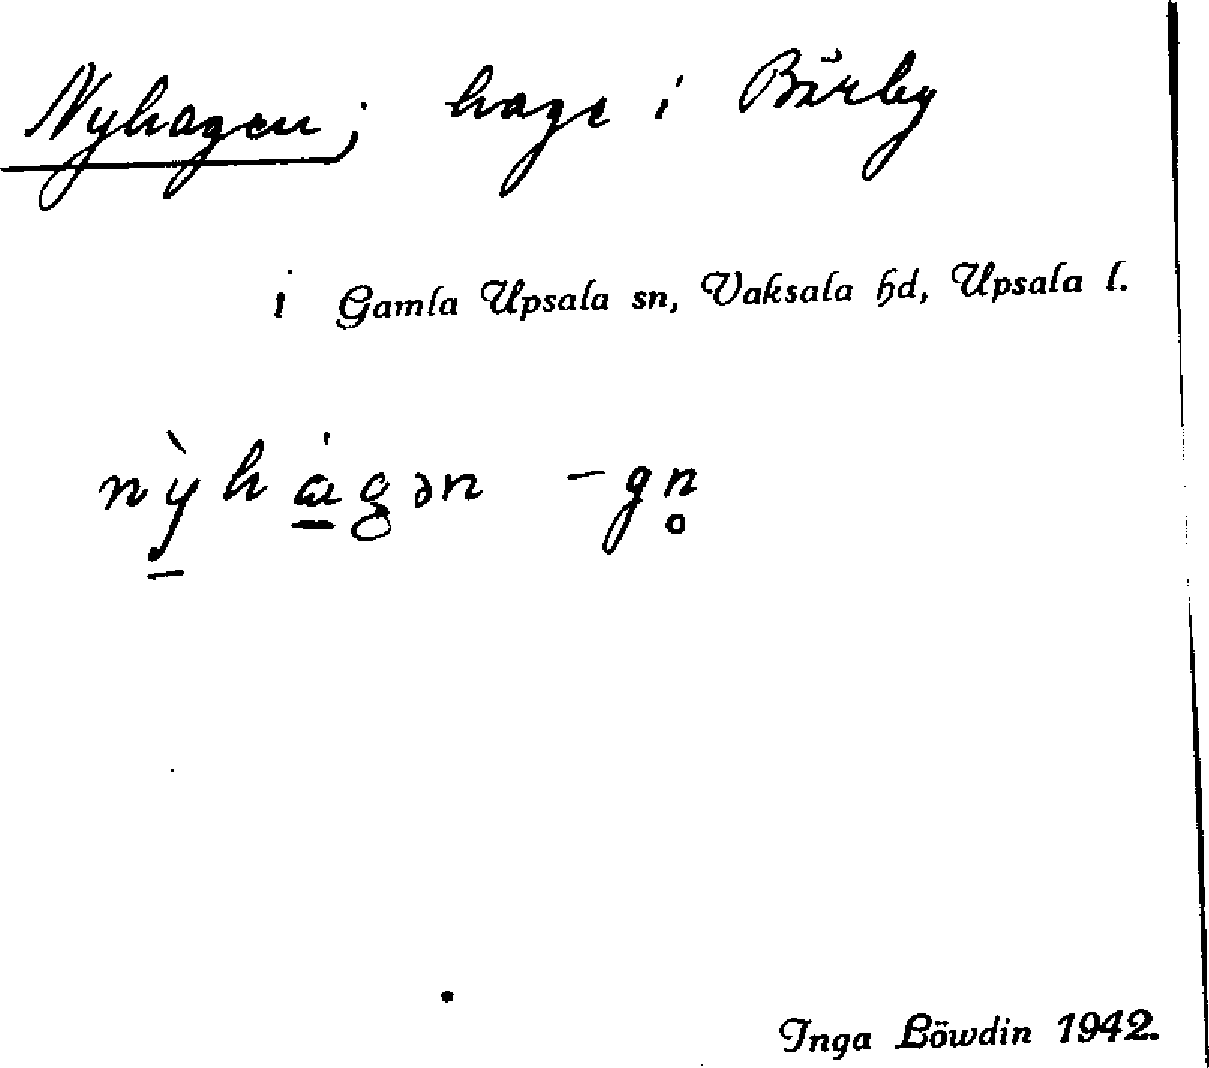 Nyhagen; hage i Bärby
i Gamla Upsala sn, Vaksala hd, Upsala l.
nỳ̠há̠gən -gn̥
Inga Löwdin 1942.